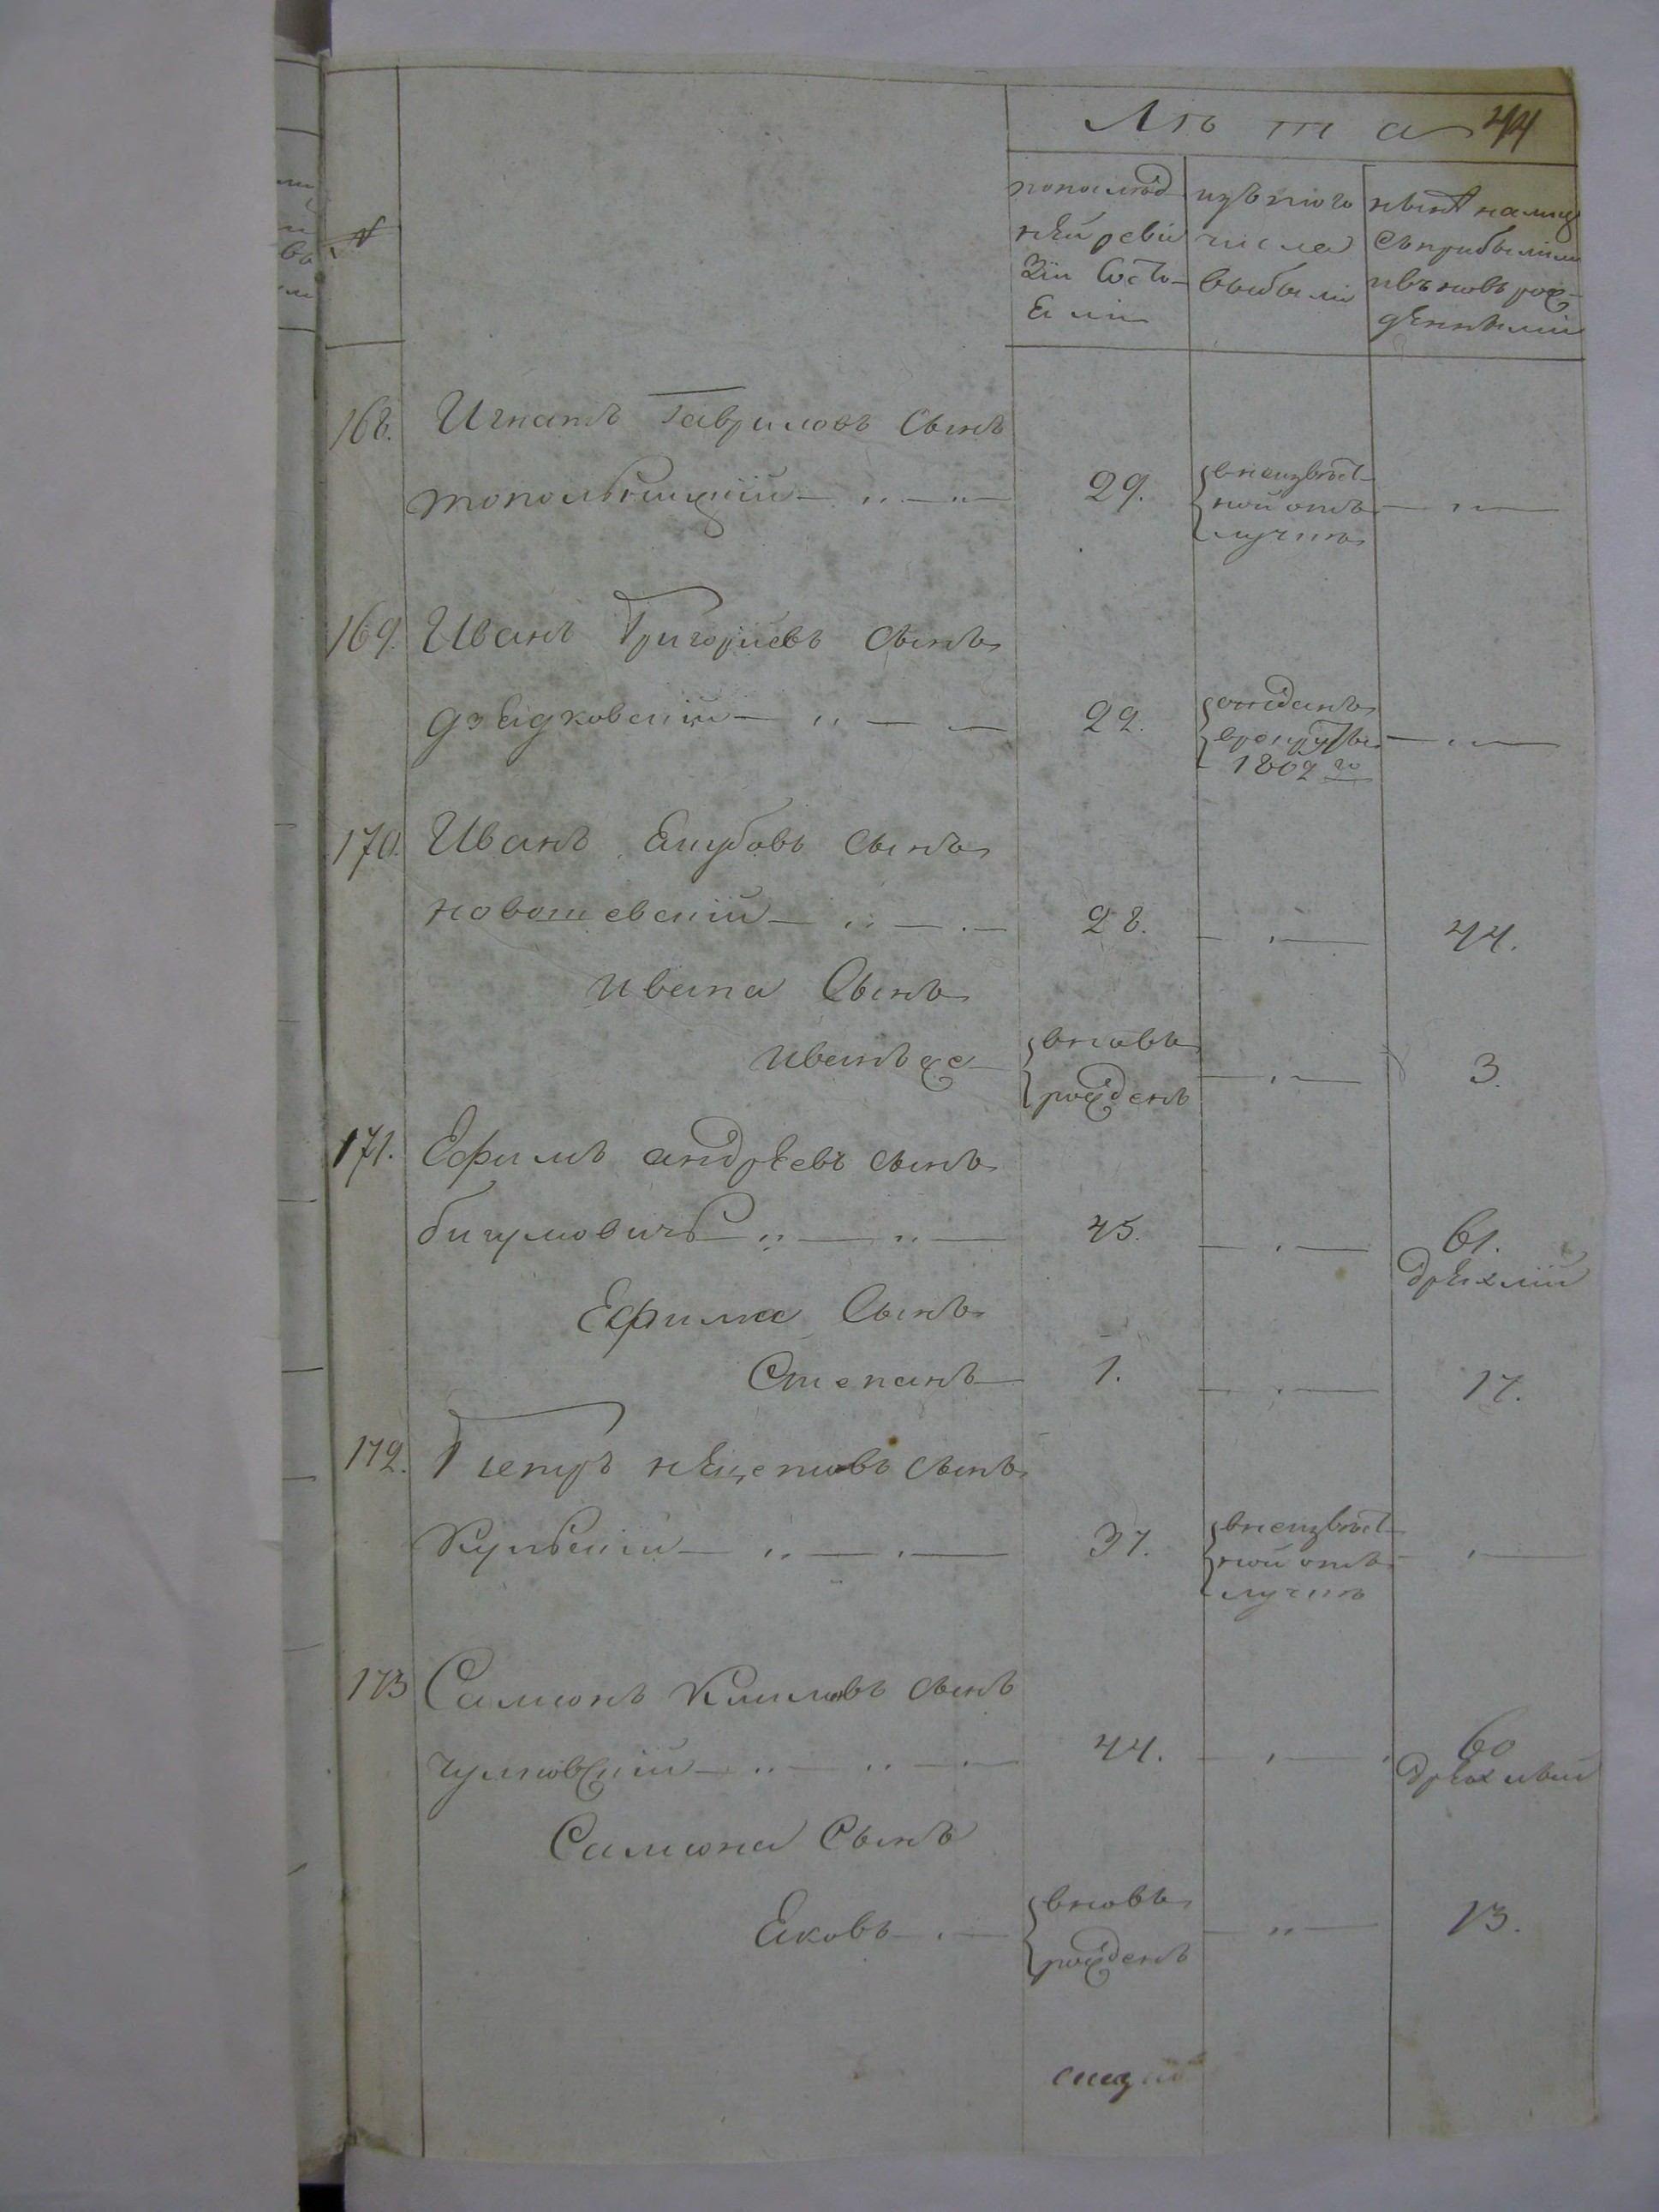 Лѣта 44
№
попослѣд
нѣй реви
зіи состо
яли
изъ того
числа
выбыли
нынѣ налице
съприбылими
ивъновь рож
деннымі
168. Игнатъ Гавриловъ Сынъ
топольницкій 29. внеизвѣст
ной отъ
лучкѣ
169. Иванъ Григоріевъ сынъ
дзядковскій 22. отданъ
врекруты
1802 го
170. Иванъ Якубовъ сынъ
новошевскій 28. 44.
ивана Сынъ
иванъже вновь
рожденъ 3.
171. Ефимъ андрѣевъ сынъ
бигумовичь 45. 61.
дряхлій
Ефима Сынъ
Степанъ 1. 17.
172. Петръ сынъ
Кульскій 37. внеизвѣст
ной отъ
лучкѣ
173 Самсонъ Климовъ сынъ
чулковскій 44. 60
дряхлый
Самсона Сынъ
Яковъ вновь
рожденъ 13.